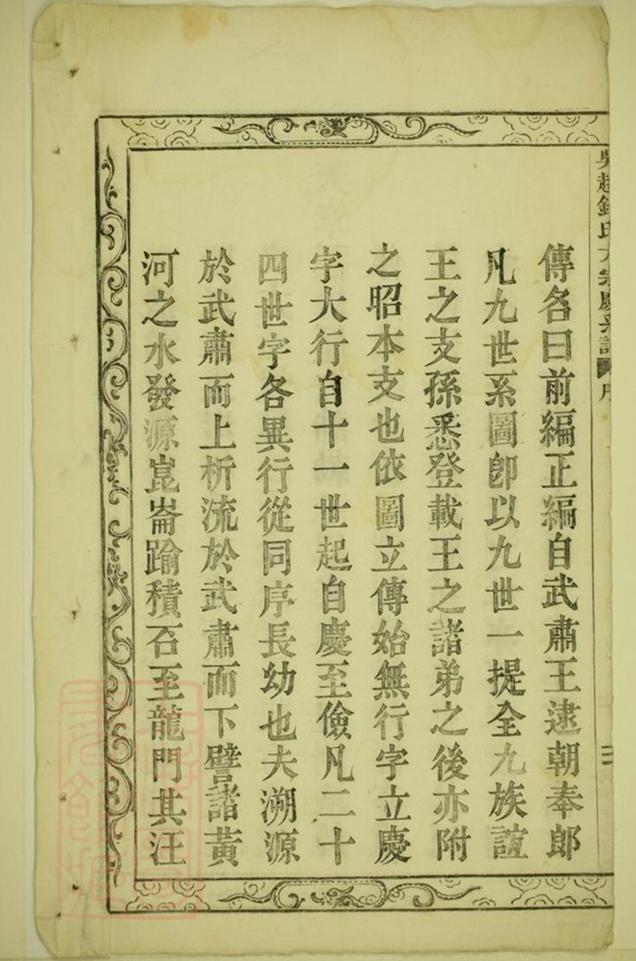 吳越錢氏大宗慶系譜 序
傳各曰前編正編自武肅王逮朝奉郎
凡九世系圖卽以九世一提全九族誼
王之支孫悉登載王之諸弟之後亦附
之昭本支也依圖立傳始無行字立慶
字大行自十一世起自慶至儉凡二十
四世字各異行從同序長幼也夫溯源
於武肅而上析流於武肅而下譬諸黃
河之水發源崑崙踰積石至龍門其汪